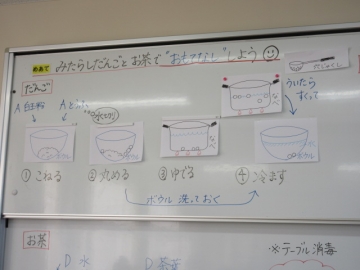 めあて みたらしだんごとお茶で"おもてなし"しよう
だんご
A 白玉粉 Aとうふ
ういたら
すくって
ボウル
なべ
なべ
ボウル
① こねる ② 丸める ③ ゆでる ④ 冷ます
ボウル 洗っておく
お茶
D 水 D 茶葉
※テーブル消毒